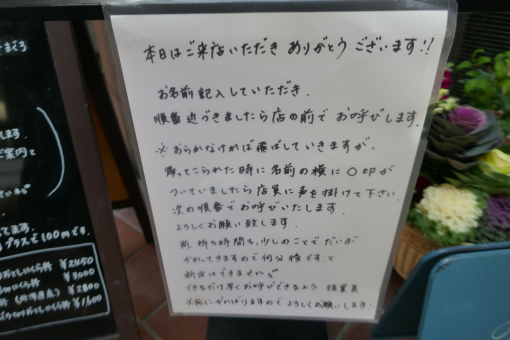 本日はご来店いただき ありがとう ございます!!
お名前記入していただき、
順番近づきましたら店の前で お呼びします。
※おられなければ飛ばしていきますが、
帰ってこられた時に名前の横に〇印が
ついていましたら店員に声を掛けて下さい。
次の順番でお呼びいたします。
よろしくお願い致します。
尚、待ち時間も、少しのことで だいぶ
かわってきますので 何分待ですと
断言はできませんが
できるだけ早くお呼びできるよう 従業員
がんばりますので よろしくお願いします。
します。
ご案内と
プラスで100円です。
¥2450
¥3000
¥2800
¥1600